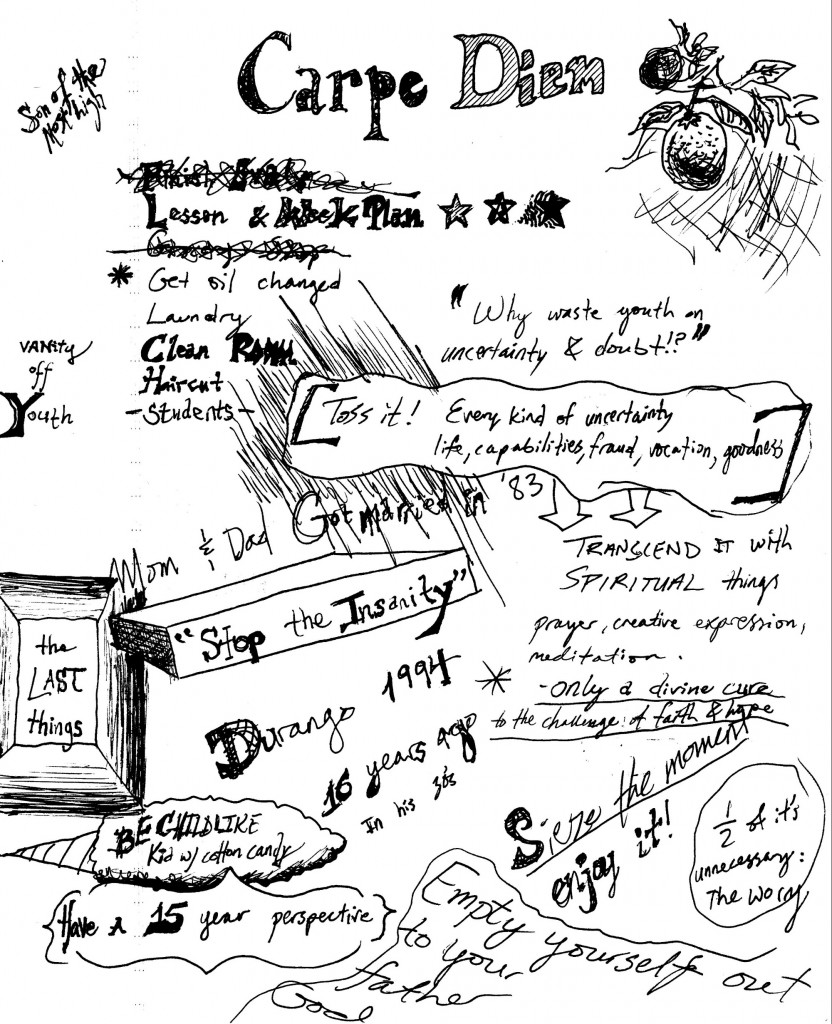 Carpe Diem
Son of the
Most high
Lesson & Week Plan
* Get oil changed
Laundry
Clean Room
Haircut
- Students -
VANity
off
Youth
"Why waste youth on
uncertainty & doubt!?"
[Toss it! Every kind of uncertainty
life, capabilities, fraud, vocation, goodness]
Mom & Dad Got married in '83
TRANSCEND IT with
SPIRITUAL things
prayer, creative expression,
meditation.
* - only a divine cure
to the challenge of faith & hope
"Stop the Insanity"
the
LAST
things
Durango 1994
16 years ago
In his 30s
Sieze the moment
enjoy it!
1/2 of it's
unnecessary:
The worry
BE CHILDLIKE
Kid w/ cotton candy
{Have A 15 year perspective}
Empty yourself out
to your
father
God